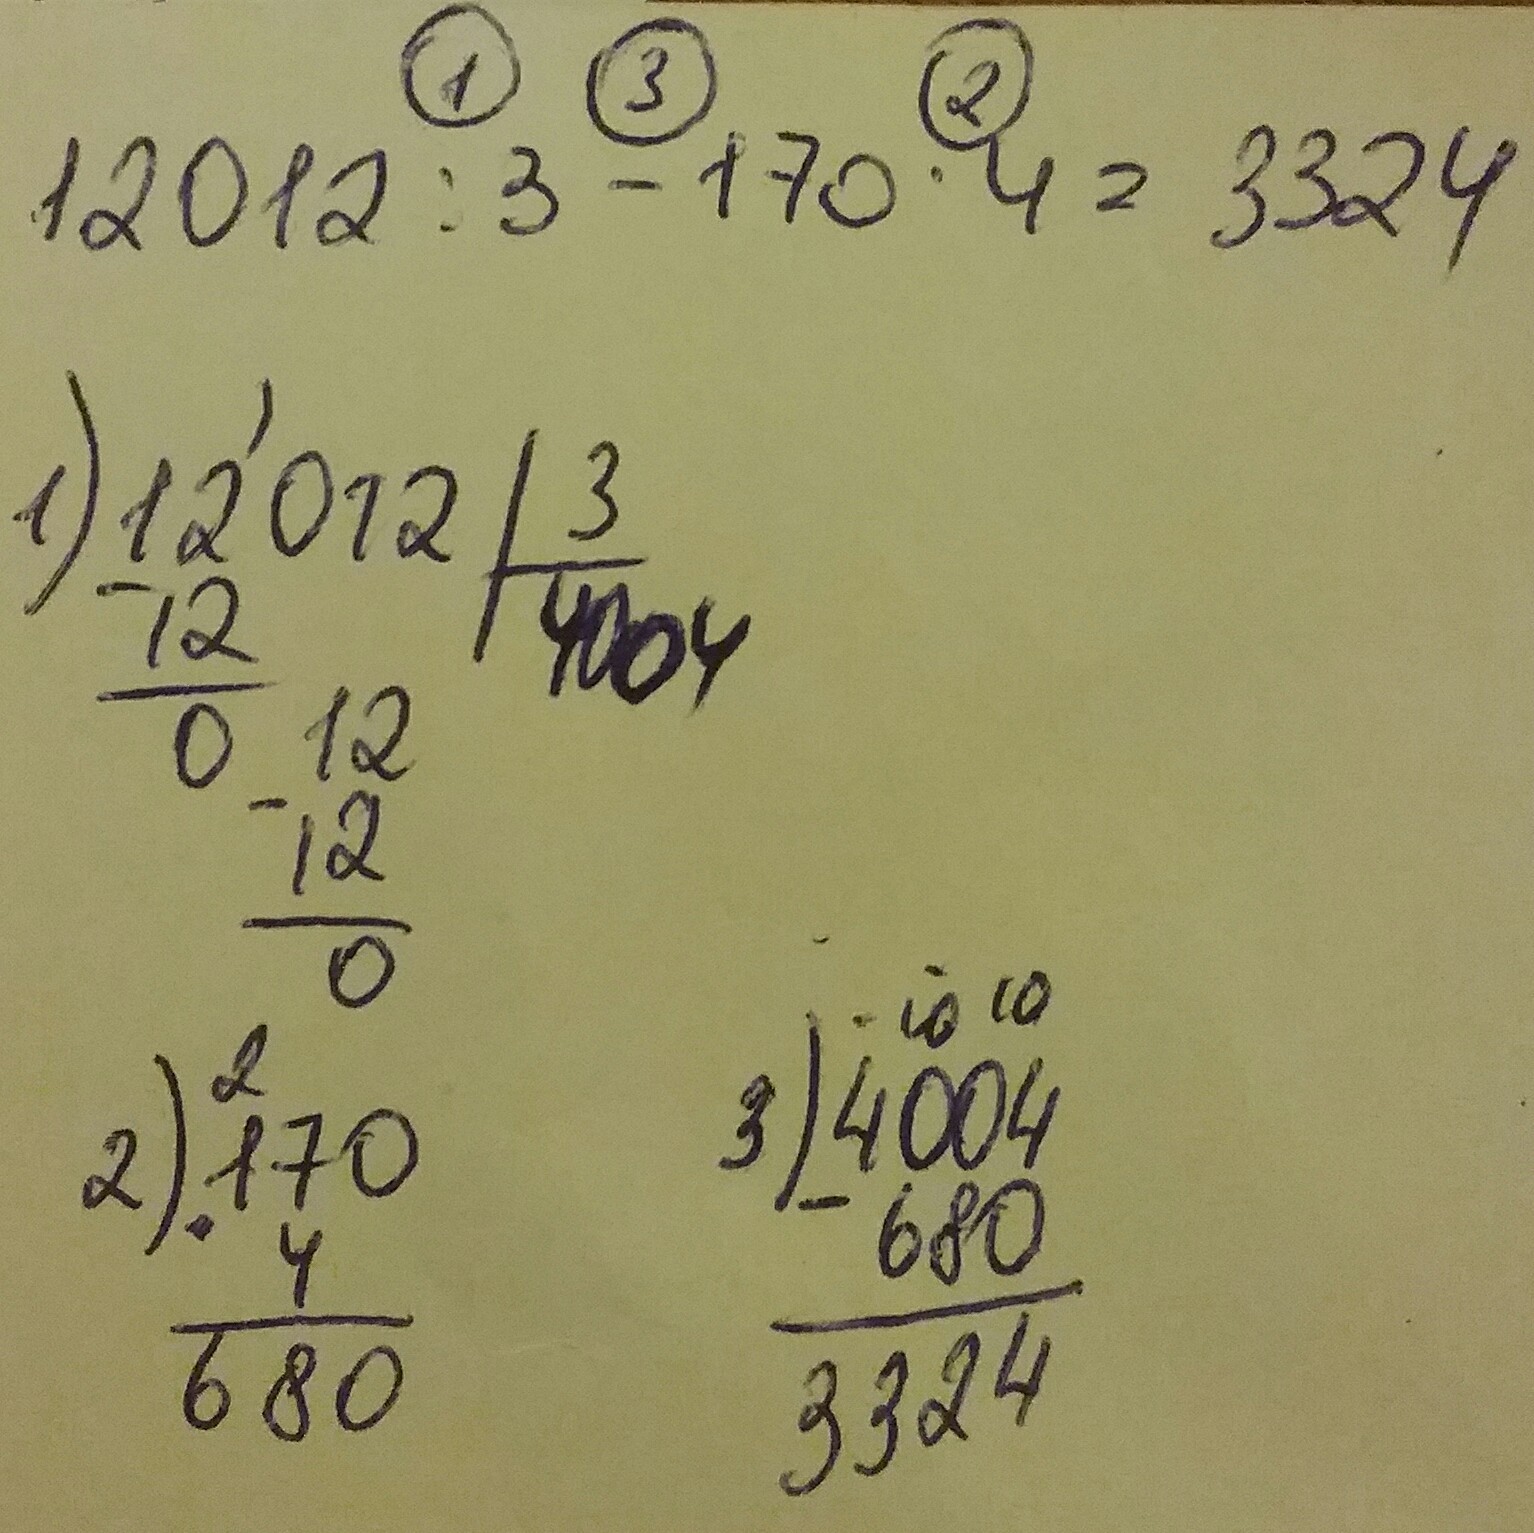 1 3 2
12012 : 3 - 170 · 4 = 3324
1) 12'012 | 3
- 12 4004
0 12
- 12
0
2
2) 170
· 4
680
- 10 10
3) 4004
- 680
3324